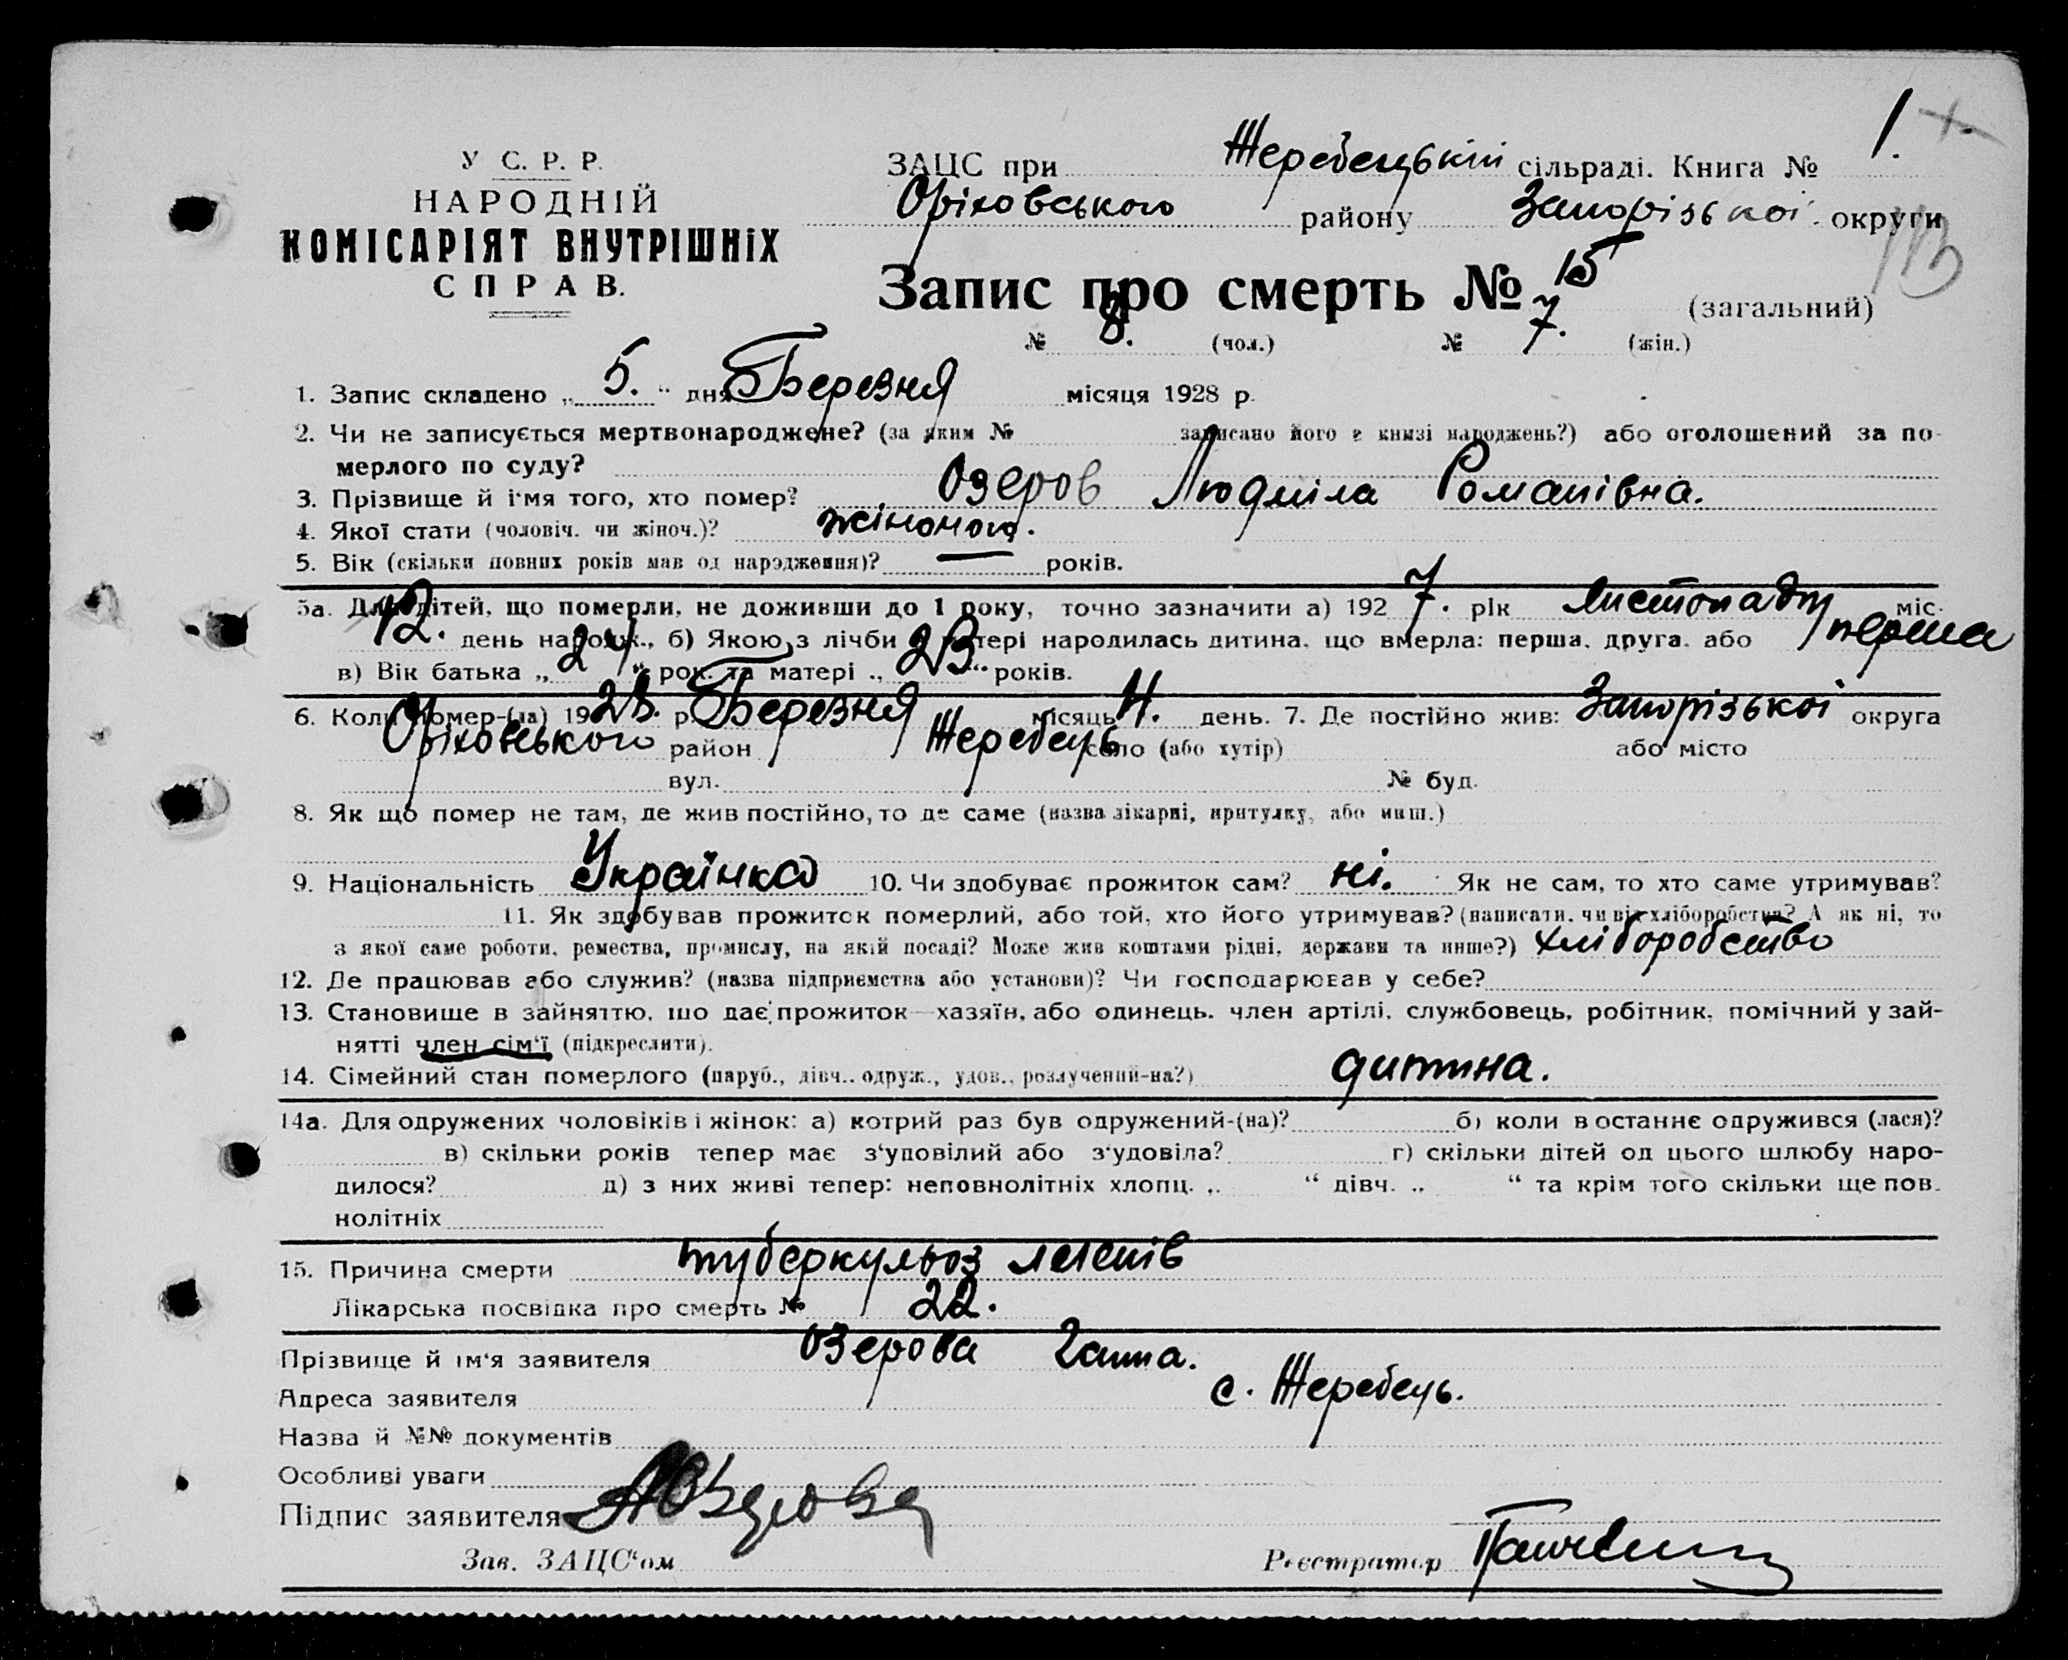 У С. Р. Р.
НАРОДНІЙ
КОМІСАРІЯТ ВНУТРІШНІХ
СПРАВ.
ЗАЦС при Жеребецькій сільраді. Книга № 1.
Оріховського району Запорізької округи
113
Запис про смерть № 15 (загальний)
№ 8. (чол.) № 7. (жін.)
1. Запис складено „ 5. “ дня Березня місяця 1928 р.
2. Чи не записується мертвонароджене? (за яким № записано його в книзі народжень?) або оголошений за по-
мерлого по суду?
3. Прізвище й і‘мя того, хто помер? Озеров Людміла Романівна.
4. Якої стати (чоловіч. чи жіноч.)? жіночого.
5. Вік (скільки повних років мав од народження)? — років.
5а. Для дітей, що померли, не доживши до 1 року, точно зазначити а) 192 7. рік Листопада міс.
12. день народж., б) Якою з лічби у матері народилась дитина, що вмерла: перша, друга. або перша
в) Вік батька „ 24 “ рок. та матері „ 23 “ років.
6. Коли помер-(ла) 19 28. р. Березня місяць 4. день. 7. Де постійно жив: Запорізької округа
Оріховського район Жеребець село (або хутір) або місто
вул. № буд.
8. Як що помер не там, де жив постійно, то де саме (назва лікарні, притулку, або инш.)
9. Національність Українка 10. Чи здобуває прожиток сам? ні. Як не сам, то хто саме утримував?
11. Як здобував прожиток померлий, або той, хто його утримував? (написати, чи від хліборобства? А як ні, то
з якої саме роботи, ремества, промислу, на якій посаді? Може жив коштами рідні, держави та инше?) хліборобство
12. Де працював або служив? (назва підприємства або установи)? Чи господарював у себе?
13. Становище в зайняттю, що дає прожиток—хазяїн, або одинець, член артілі, службовець, робітник, помічний у зай-
нятті член сім‘ї (підкреслити).
14. Сімейний стан померлого (паруб., дівч., одруж., удов., розлучений-на?) дитина.
14а. Для одружених чоловіків і жінок: а) котрий раз був одружений-(на)? б) коли востаннє одружився (лася)?
в) скільки років тепер має з‘уповілий або з‘удовіла? г) скільки дітей од цього шлюбу наро-
дилося? д) з них живі тепер: неповнолітніх хлопц. „ “ дівч. „ “ та крім того скільки ще пов.
нолітніх
15. Причина смерти туберкульоз легенів
Лікарська посвідка про смерть № 22.
Прізвище й ім‘я заявителя Озерова Ганна.
Адреса заявителя с. Жеребець.
Назва й №№ документів
Особливі уваги
Підпис заявителя АОзерова
Зав. ЗАЦС‘ом Реєстратор